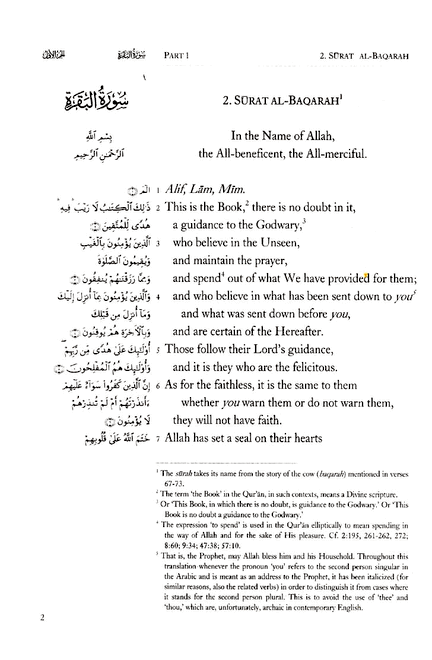 الجزء الأول سورة البقرة PART 1 2. SŪRAT AL-BAQARAH
١
سُورَةُ البَقَرَةِ 2. SŪRAT AL-BAQARAH¹
بِسْمِ اللَّهِ In the Name of Allah,
الرَّحْمَٰنِ الرَّحِيمِ the All-beneficent, the All-merciful.
الم ۝ 1 Alif, Lām, Mīm.
ذَٰلِكَ الْكِتَابُ لَا رَيْبَ ۛ فِيهِ ۛ 2 This is the Book,² there is no doubt in it,
هُدًى لِلْمُتَّقِينَ ۝ a guidance to the Godwary,³
الَّذِينَ يُؤْمِنُونَ بِالْغَيْبِ 3 who believe in the Unseen,
وَيُقِيمُونَ الصَّلَاةَ and maintain the prayer,
وَمِمَّا رَزَقْنَاهُمْ يُنْفِقُونَ ۝ and spend⁴ out of what We have provided for them;
وَالَّذِينَ يُؤْمِنُونَ بِمَا أُنْزِلَ إِلَيْكَ 4 and who believe in what has been sent down to you⁵
وَمَا أُنْزِلَ مِن قَبْلِكَ and what was sent down before you,
وَبِالْآخِرَةِ هُمْ يُوقِنُونَ ۝ and are certain of the Hereafter.
أُولَٰئِكَ عَلَىٰ هُدًى مِّن رَّبِّهِمْ 5 Those follow their Lord's guidance,
وَأُولَٰئِكَ هُمُ الْمُفْلِحُونَ ۝ and it is they who are the felicitous.
إِنَّ الَّذِينَ كَفَرُوا سَوَاءٌ عَلَيْهِمْ 6 As for the faithless, it is the same to them
ءَأَنذَرْتَهُمْ أَمْ لَمْ تُنذِرْهُمْ whether you warn them or do not warn them,
لَا يُؤْمِنُونَ ۝ they will not have faith.
خَتَمَ اللَّهُ عَلَىٰ قُلُوبِهِمْ 7 Allah has set a seal on their hearts
¹ The sūrah takes its name from the story of the cow (baqarah) mentioned in verses
67-73.
² The term 'the Book' in the Qur'ān, in such contexts, means a Divine scripture.
³ Or 'This Book, in which there is no doubt, is guidance to the Godwary.' Or 'This
Book is no doubt a guidance to the Godwary.'
⁴ The expression 'to spend' is used in the Qur'ān elliptically to mean spending in
the way of Allah and for the sake of His pleasure. Cf. 2:195, 261-262, 272;
8:60; 9:34; 47:38; 57:10.
⁵ That is, the Prophet, may Allah bless him and his Household. Throughout this
translation whenever the pronoun 'you' refers to the second person singular in
the Arabic and is meant as an address to the Prophet, it has been italicized (for
similar reasons, also the related verbs) in order to distinguish it from cases where
it stands for the second person plural. This is to avoid the use of 'thee' and
'thou,' which are, unfortunately, archaic in contemporary English.
2